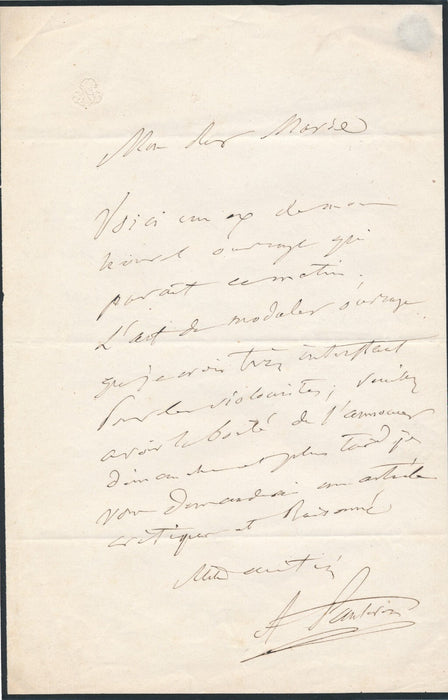 Mon cher Marie
Voici un ex de mon
nouvel ouvrage qui
parait ce matin.
L'art de moduler ouvrage
que je crois très intéressant
Pour les violonistes; veuillez
avoir la bonté de l'annoncer
dimanche et plus tard je
vous demanderai un article
critique et Raisonné
Mille
A Panseron